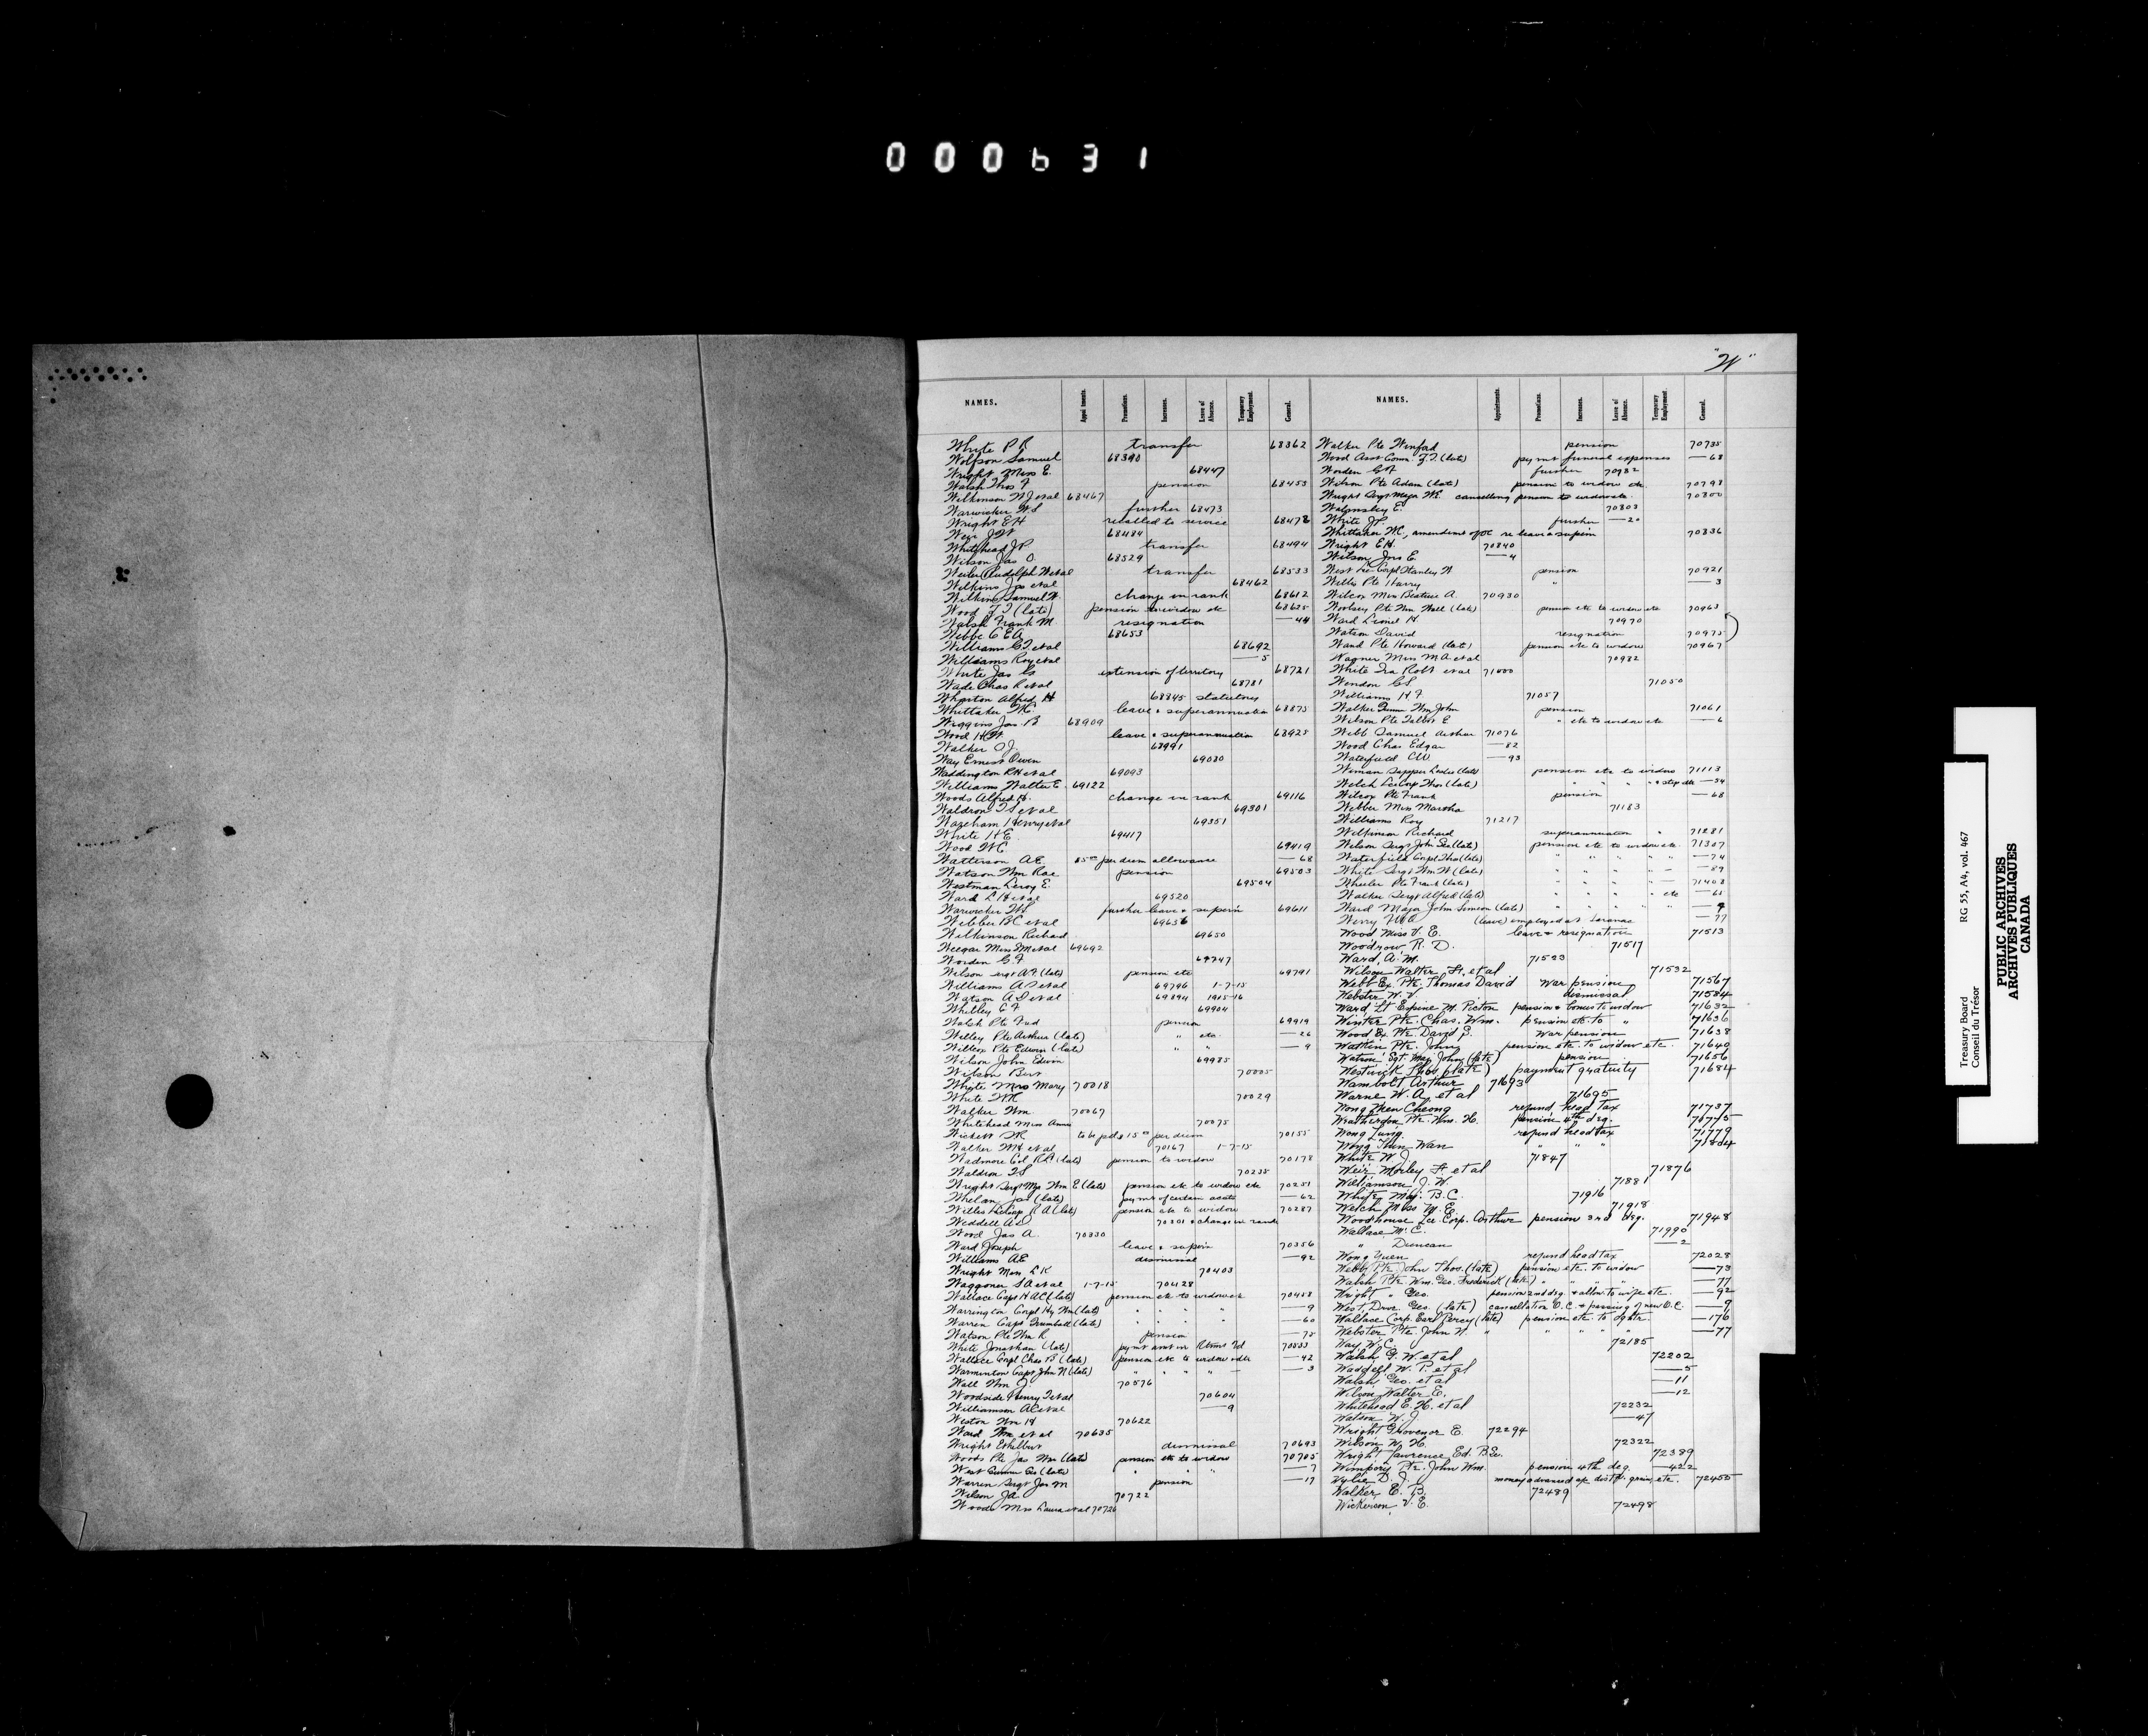 000631
"W"
NAMES. Appointments. Promotions. Increases. Leave of Absence. Temporary Employment. General.
White P R transfer 68362
Wolfson Samuel 68390
Wright Miss E. 68447
Walsh Thos F pension 68453
Wilkinson N J et al 68467
Warwicker W.S further 68473
Wright E H recalled to service 68478
Weir J W 68484
Whitehead J P transfer 68494
Wilson Jas O 68529
Weiler Rudolph W et al transfer 68533
Wilkins Jos et al 68462
Wilkins Samuel W. change in rank 68612
Wood Z T (late) pension to widow etc 68635
Walsh Frank M resignation —44
Webbe C E A 68653
Williams C T et al 68692
Williams Roy et al —5
White Jas extension of territory 68721
Wade Chas R et al 68781
Wharton Alfred H 68845 statutory
Whittaker W.C. leave & superannuation 68873
Wiggins Jas. B 68909
Wood H W. leave & superannuation 68925
Walker O J. 68991
Way Ernest Owen 69080
Waddington R H et al 69093
Williams Walter E. 69122
Woods Alfred H. change in rank 69116
Waldron T S et al 69301
Wareham Henry et al 69351
White H E 69417
Wood W C 69419
Watterson A E. per diem allowance —68
Watson Wm Rae pension 69503
Westman Leroy E. 69504
Ward L H et al 69520
Warwicker W S further leave & supern 69611
Webber B C et al 69636
Wilkinson Richard 69650
Weegar Miss M et al 69692
Worden G. F 69747
Wilson Sergt A F (late) pension etc 69791
Williams A T et al 69796 1-7-15
Watson A D et al 69894 1915-16
Whitley C F 69904
Walsh Pte Fred pension 69919
Willey Pte Arthur (late) " etc —26
Willcox Pte Edwin (late) " " —9
Wilson John Edwin 69985
Wilson Bert 70005
Whyte Mrs Mary 70018
White W.R 70029
Walker Wm. 70067
Whitehead Miss Annie 70075
Wickett S R to be pd $15 00 per diem 70155
Walker W H et al 70167 1-7-15
Wadmore Col R L (late) pension to widow 70178
Waldron T S 70235
Wright Sergt Maj Wm E (late) pension etc to widow etc 70251
Whelan Jas (late) paymt of certain accts —62
Willis Philip R A (late) pension etc to widow 70287
Weddell A E 70301 & change in rank
Wood Jas A. 70330
Ward Joseph leave & supern 70356
Williams A E dismissal —92
Wright Miss L K 70403
Waggoner S A et al 1-7-15 70428
Wallace Capt H A C (late) pension etc to widow etc 70458
Warrington Corpl Hy Wm (late) " " " " —9
Warren Capt Trumbull (late) " " " " —60
Watson Pte Wm R. pension —75
White Jonathan (late) 70533
Wallace Corpl Chas B (late) pension etc to widow & chdn —42
Warminton Capt John N (late) " " " " —3
Wall Wm J. 70576
Woodside Henry J et al 70604
Williamson A C et al —9
Weston Wm H 70622
Ward Wm et al 70635
Wright Ethelbert dismissal 70693
Woods Pte Jas Wm (late) pension etc to widow 70705
West Gunner Geo (late) " " " —7
Warren Sergt Jas M pension —17
Wilson J A. 70722
Woods Mrs Laura et al 70726
NAMES. Appointments. Promotions. Increases. Leave of Absence. Temporary Employment. General.
Walker Pte Winford pension 70735
Wood Asst Comr. Z.T. (late) paymt funeral expenses —68
Worden G F further 70782
Wilson Pte Adam (late) pension to widow etc 70798
Wright Sergt Major W E cancelling pension to widow etc. 70800
Walmsley E. 70803
White J P. further —20
Whittaker W C., amendmt of OC re leave & supern 70836
Wright E H. 70840
Wilson Jno E. —4
West Lce Corpl Stanley W pension 70921
Wells Pte Harry " —3
Wilcox Miss Beatrice A. 70930
Woolsey Pte Wm Hall (late) pension etc to widow etc 70963
Ward Lionel H 70970
Watson David resignation 70975
Wand Pte Howard (late) pension etc to widow 70967
Wagner Miss M A et al 70982
White Ira Robt et al 71000
Wendon C S 71050
Williams H F 71057
Walker Gunner Wm John pension 71061
Wilson Pte Talbot E " etc to widow etc —6
Webb Samuel Arthur 71076
Wood Chas Edgar —82
Waterfield C W. —93
Wiman Sapper Leslie (late) pension etc to widow 71113
Welch Lce Corp Thos (late) " " " " & step chdn —54
Wilcox Pte Frank pension —68
Webber Miss Martha 71183
Williams Roy 71217
Wilkinson Richard superannuation 71281
Wilson Sergt John Geo (late) pension etc to widow etc. 71307
Waterfield Corpl Thos (late) " " " " " —74
White Sergt Wm W (late) " " " " —89
Wheeler Pte Frank (late) " " " " 71408
Walker Sergt Alfred (late) " " " " etc —65
Ward Major John Simeon (late) " " " " —9
Werry F W O (leave) employed at Saranac —77
Wood Miss V. E. leave & resignation 71513
Woodrow R. D. 71517
Ward, A. M. 71523
Wilson Walter H. et al 71532
Webb Ex. Pte. Thomas David war pension 71567
Webster W. V. dismissal 71584
Ward Lt Espine M. Picton pension & bonus to widow 71632
Winter Pte Chas. Wm. pension etc. to " 71636
Wood Ex. Pte. David S. war pension 71638
Watkin Pte. John pension etc. to widow etc. 71640
Watson Sgt. Maj. John (late) pension 71656
Westwick Thos. (late) payment gratuity 71684
Wambolt Arthur 71693
Warne W. A. et al 71695
Wong When Cheong refund head tax 71737
Weatherdon Pte. Wm. H. pension 4th deg. 71775
Wong Lung refund head tax 71779
Wong Thin Wan " " " 71804
White W. J. 71847
Weir Morley F. et al 71876
Williamson J. W. 71881
White, Maj. B. C. 71916
Welch Miss M. E. 71918
Woodhouse Lce. Corp. Arthur pension 3rd deg. 71948
Wallace M. C. 71990
" Duncan —2
Wong Yuen refund head tax 72028
Webb Pte John Thos. (late) pension etc. to widow —73
Walsh Pte. Wm. Geo. Frederick (late) " " " " —77
Wright " Geo. pension 2nd deg. & allow. to wife etc. —92
West, Driver Geo. (late) cancellation O.C. & passing of new O.C. —9
Wallace Corp. Earl Percy (late) pension etc. to dghtr —176
Webster Pte. John W. " " " " " —77
Way W. C. 72185
Walsh G. W. et al 72202
Waddell W. P. et al —5
Walsh Geo. et al —11
Wilson Walter E. —12
Whitehead E. H. et al 72232
Watson W. J. —47
Wright Grovenor E. 72294
Wilson W. H. 72322
Wright Lawrence Ed. B.Sc. 72389
Wimpory Pte. John Wm. pension 4th deg. —422
Wylie D. J. money advanced re distn. grain, etc. 72455
Walker E. B. 72489
Wickerson, V. E. 72498
Treasury Board RG 55, A4, vol. 467
Conseil du Trésor
PUBLIC ARCHIVES
ARCHIVES PUBLIQUES
CANADA